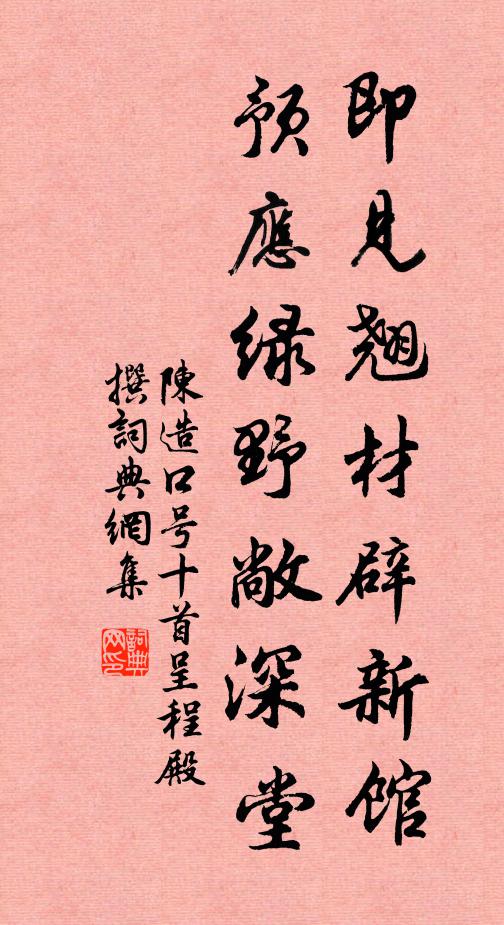 即見翹材辟新館
預應緑野敞深堂
陳造口号十首呈程殿
撰詞典網集
詞典網印